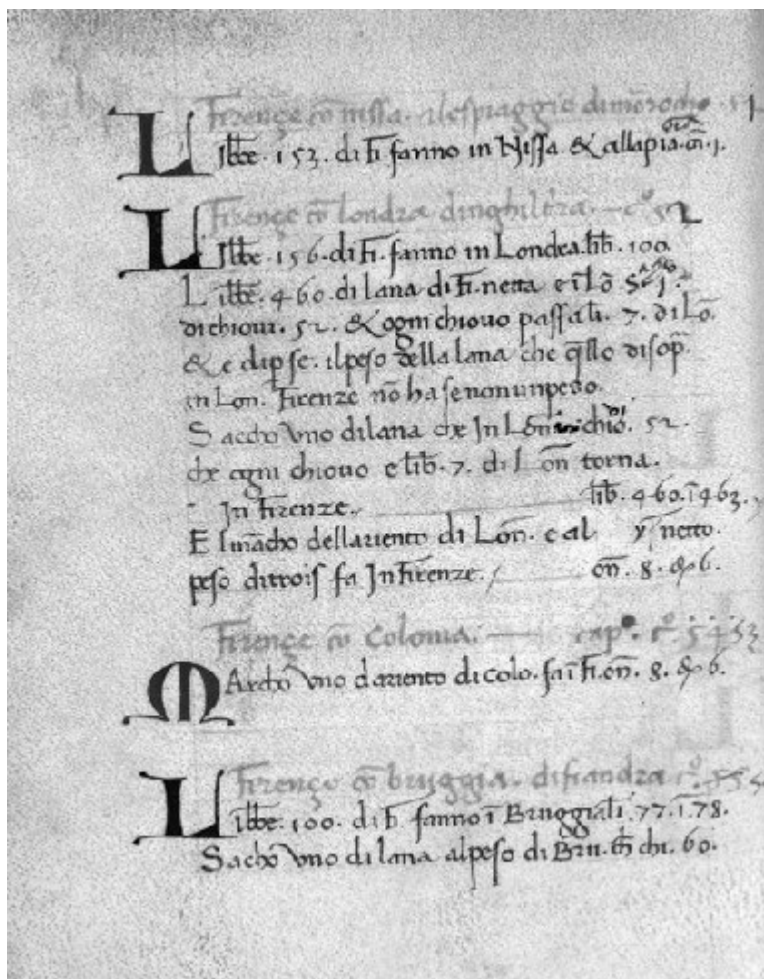 Firençe cō nissa. ilespiaggie dimōrocho. 51
Libbē. 153. di fi fanno in Nissa & allapia. cā. 1.
Firençe cō londra dinghiltra. — cº. 52
Libbē. 156. di fi. fanno in Londra. lib. 100.
Libbē. 460. di lana di fi. netta e ī Lō
di chioui. 52. & ogni chiouo passa li. 7. di Lō.
& e dip se. il peso della lana che q̄llo disop̄
in Lon. Firenze nō ha se non un peso.
Saccho vno di lana che In Lōn chiō. 52.
che ogni chiouo e lib. 7. di Lōn torna.
In firenze. lib. 460. ī 463.
E lmācho dellariento di Lōn. e al netto
peso ditrois fa In firenze. ōn. 8. & 6.
Firençe cō Colonia. — capº. cº. 54 53
Marchō vno dariento di colo. fa ī fi. ōn. 8. & 6.
Firençe cō bruggia. difiandra cº.
Libbē. 100. di fi. fanno ī Bruggia li. 77. ī 78.
Sachō vno di lana alpeso di Bru. chi. 60.